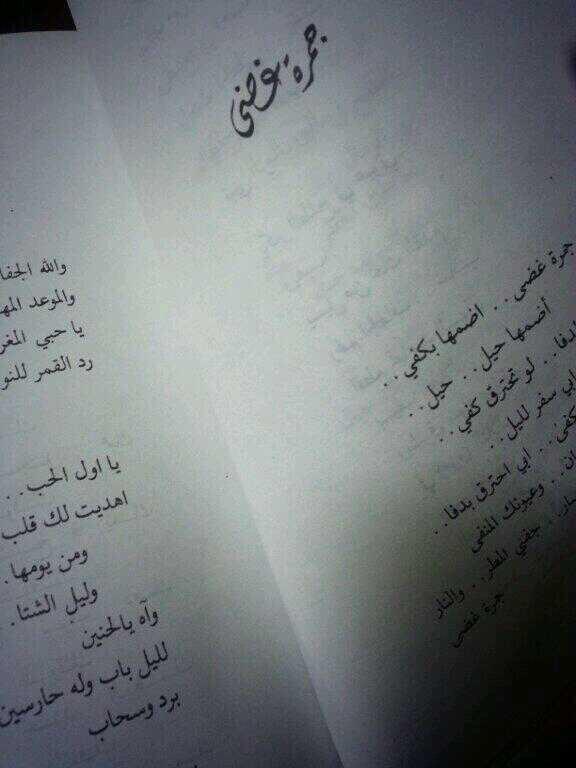 جمرة غضى
جمرة غضى . . اضمها بكفي . .
أضمها حيل . . حيل . .
لو تحترق كفي . .
ابي سفر لليل . .
ابي احترق بدفا . .
وعيونك المنفى
جفني المطر . . والنار
جمرة غضى
والله الجفا
والموعد
يا حبي
رد القمر
يا اول الحب . .
اهديت لك قلب
ومن يومها .
وليل الشتا .
وآه يالحنين
لليل باب وله حارسين
برد وسحاب